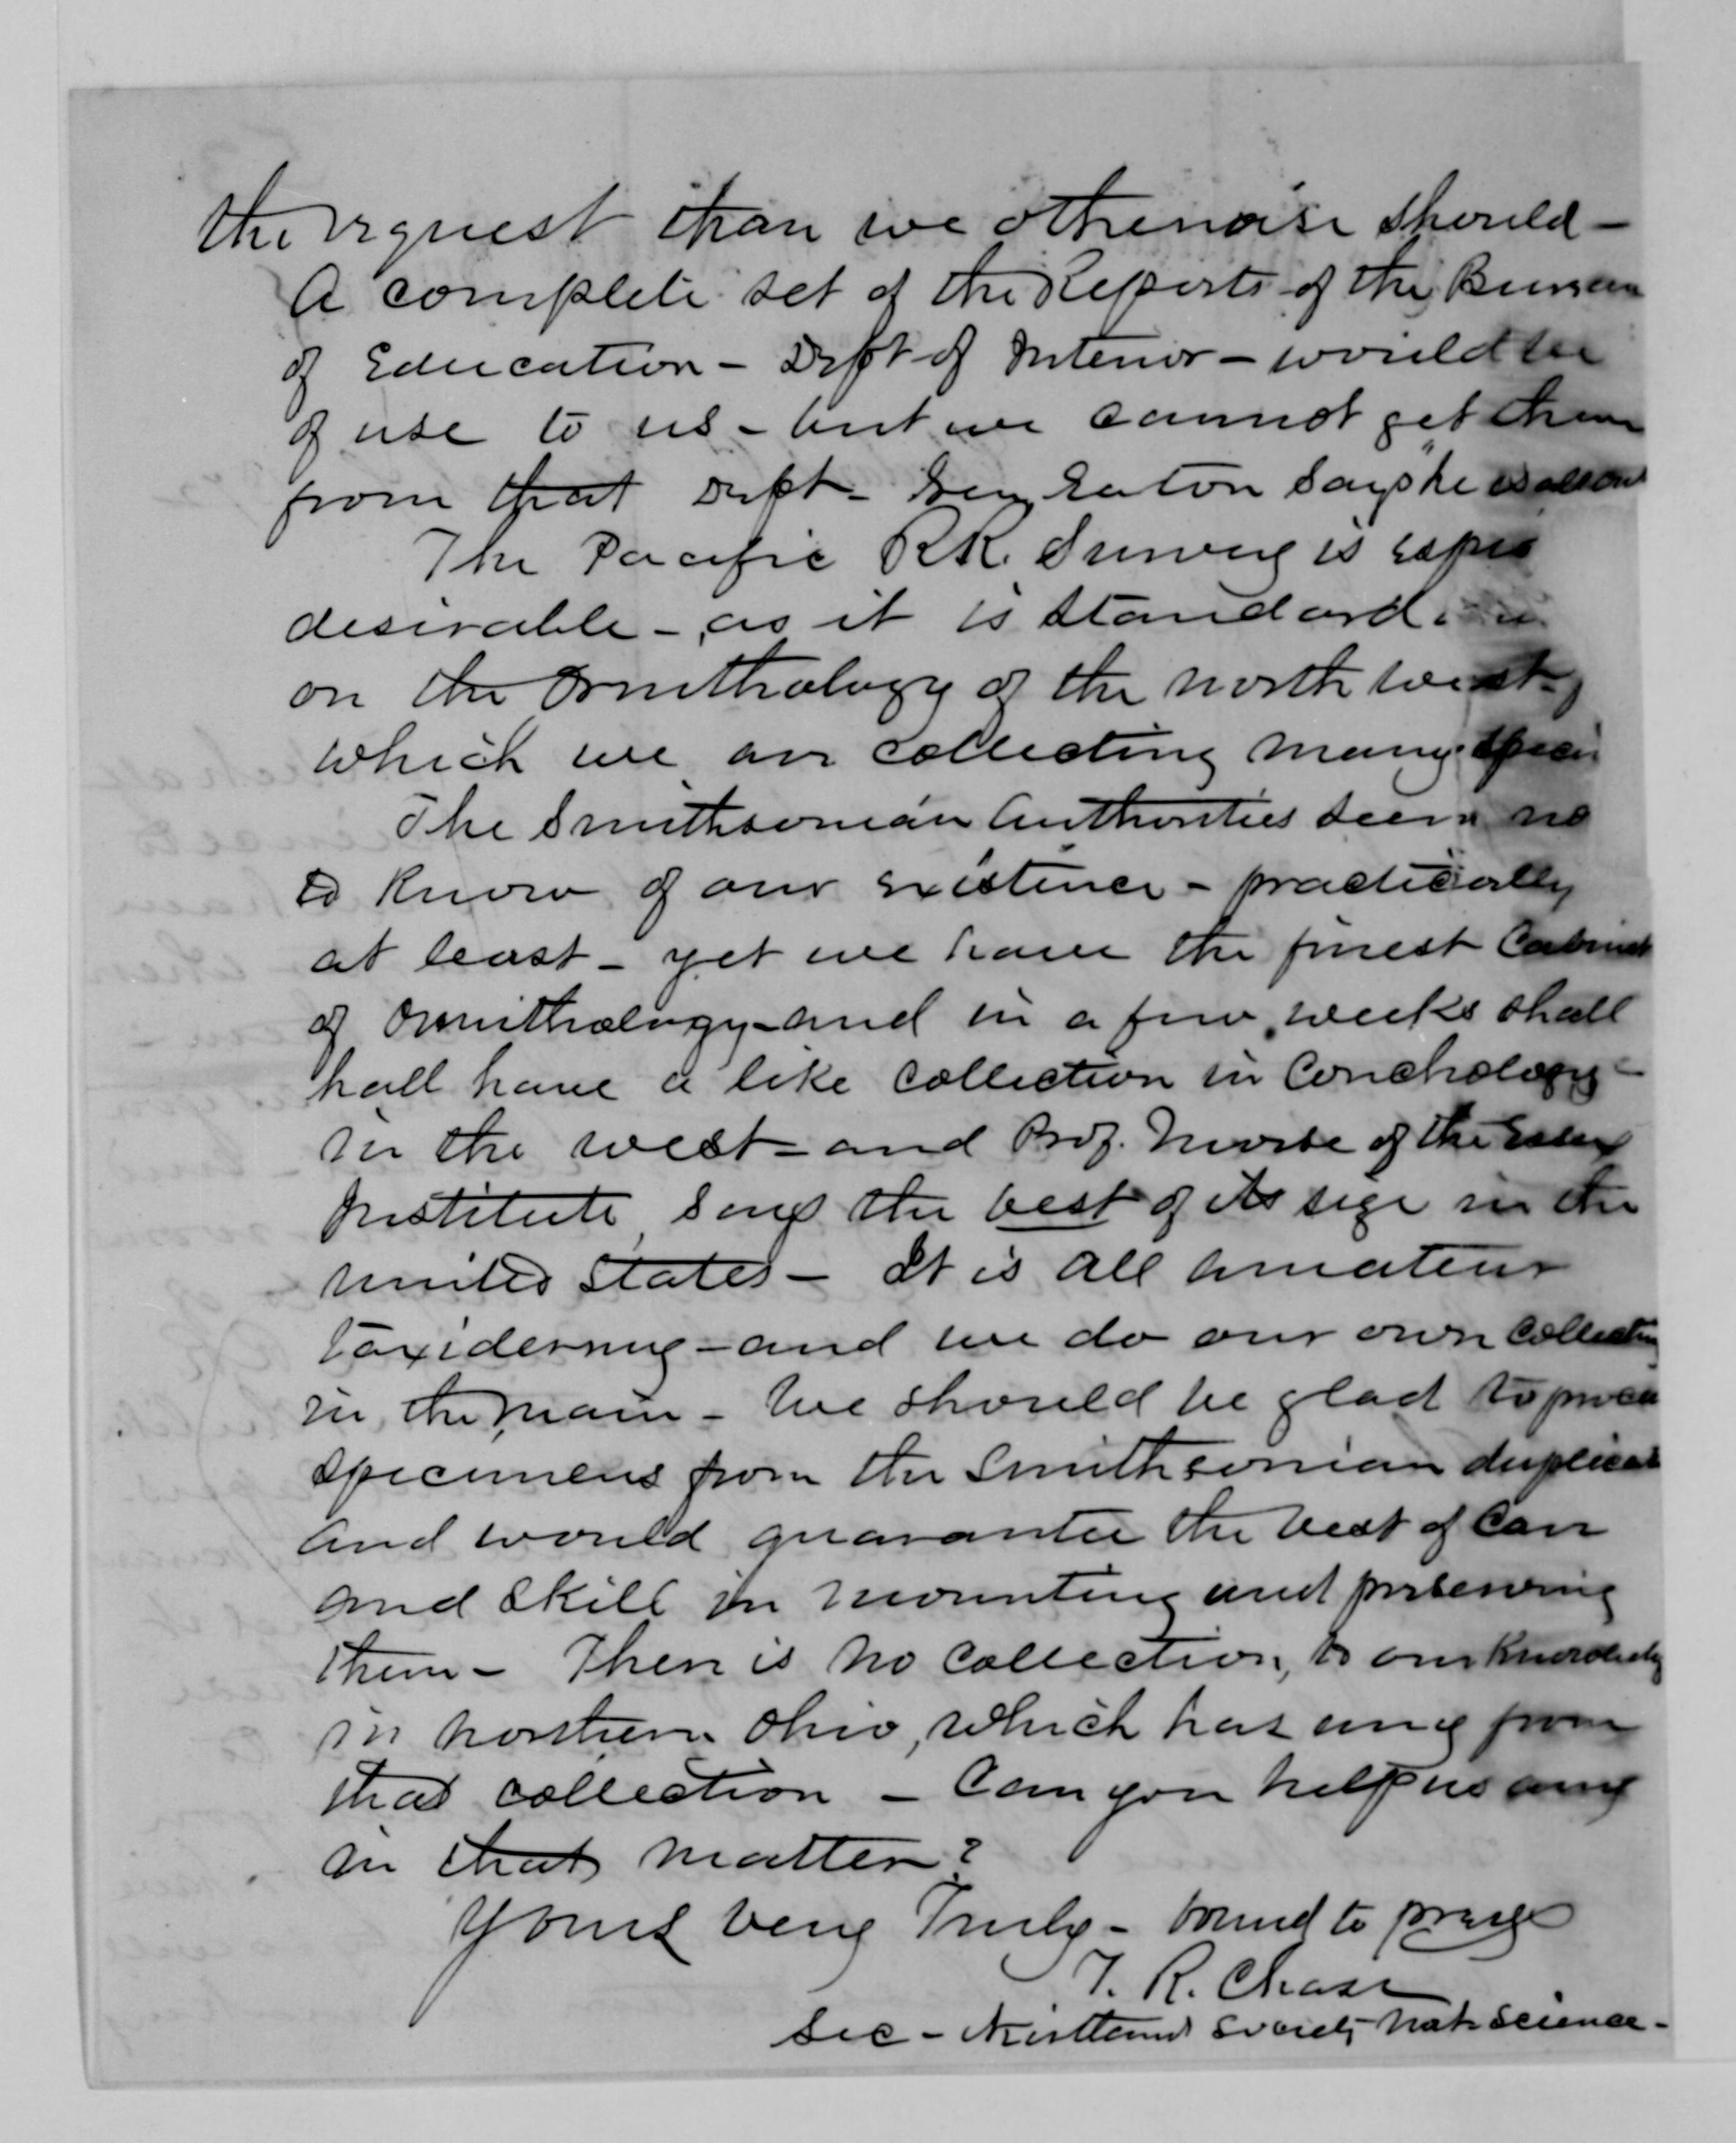 the request than we otherwise should -
A complete set of the Reports of the Bureau
of Education - Dept of Interior - would be
of use to us - but we cannot get them
from that Dept - Gen Eaton says he is all out
The Pacific RR. Survey is
desirable - as it is standard
on the Ornithology of the north west
which we are collecting many
The Smithsonian Authorities seem
to know of our existence - practically
at least - yet we have the finest Cabinet
of Ornithology - and in a few weeks shall
hall have a like collection in Conchology -
in the west - and Prof. Morse of the Essex
Institute says the best of its size in the
United States - It is all amateur
Taxidermy - and we do our own collecting
in the main - We should be glad to
specimens from the Smithsonian
and would guarantee the best of care
and skill in mounting and preserving
them - There is no collection, to our knowledge
in northern Ohio, which has any from
that collection - Can you help us any
in that matter?
Yours very Truly - bound to
T. R. Chase
Sec - Kirtland Society Nat Science -